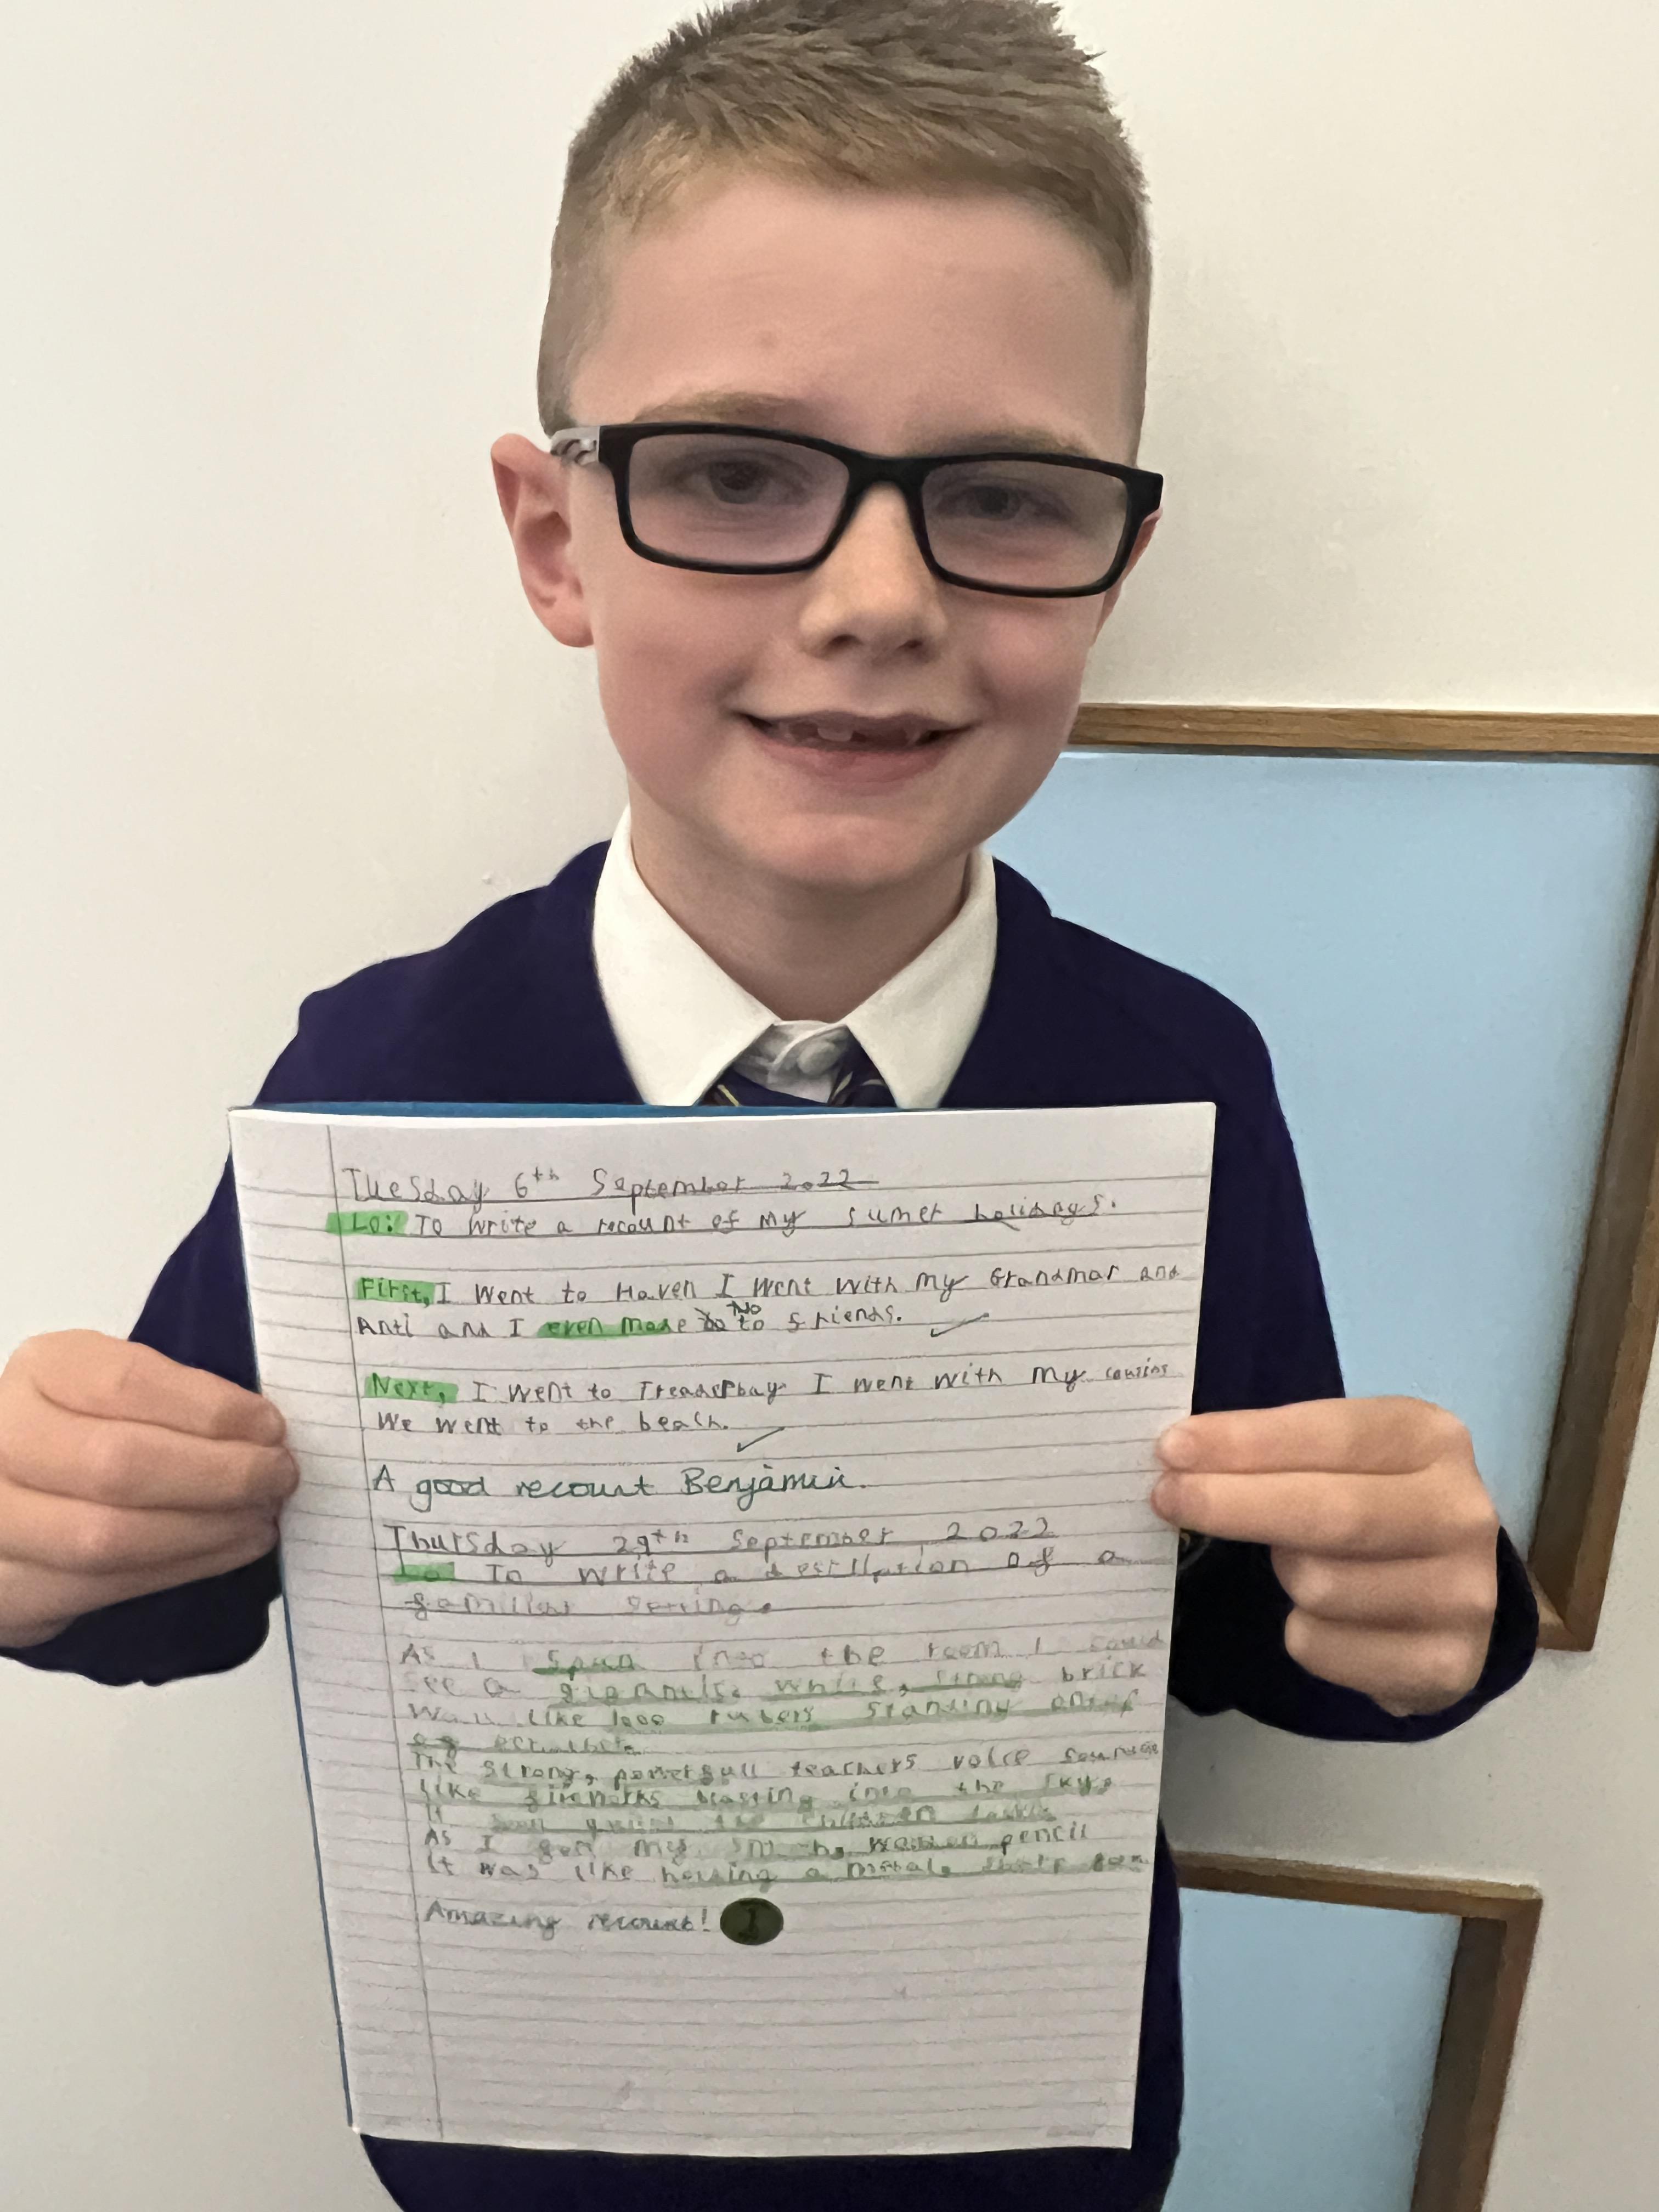 Tuesday 6th September 2022
Lo: To write a recount of my sumer holidays.
First, I went to Haven I went with my Grandmar and
Anti and I even made two to friends.
Next, I went to Treaderbay I went with my cousins
We went to the beach.
A good recount Benjamin.
Thursday 29th September 2022
Lo: To write a of a
setting.
As I spun into the room I could
see a gigantic, white, strong brick
wall like 1000 rubers standing ontof
The strong, powerfull teachers voice sounded
like fireworks blasting into the sky,
It the children
As I my pencil
It was like holding a metal, sharp
Amazing recount!